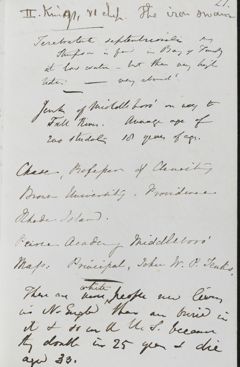 21.
II. Kings, vi chap. The iron swam
Terebratula septentrionalis says
Stimpson is found in Bay of Fundy
at low water - but then very high
tides. — very abund!
Jenks of Middleboro' on way to
Fall River. Average age of
his students 18 years of age.
Chace, Professor of Chemistry
Brown University. Providence
Rhode Island.
Peirce Academy Middleboro'
Mass. Principal, John W. P. Jenks.
white
There are more people now living
in N. Eng. than are buried in
it & so in all U.S. because
they double in 25 years & die
aged 33.